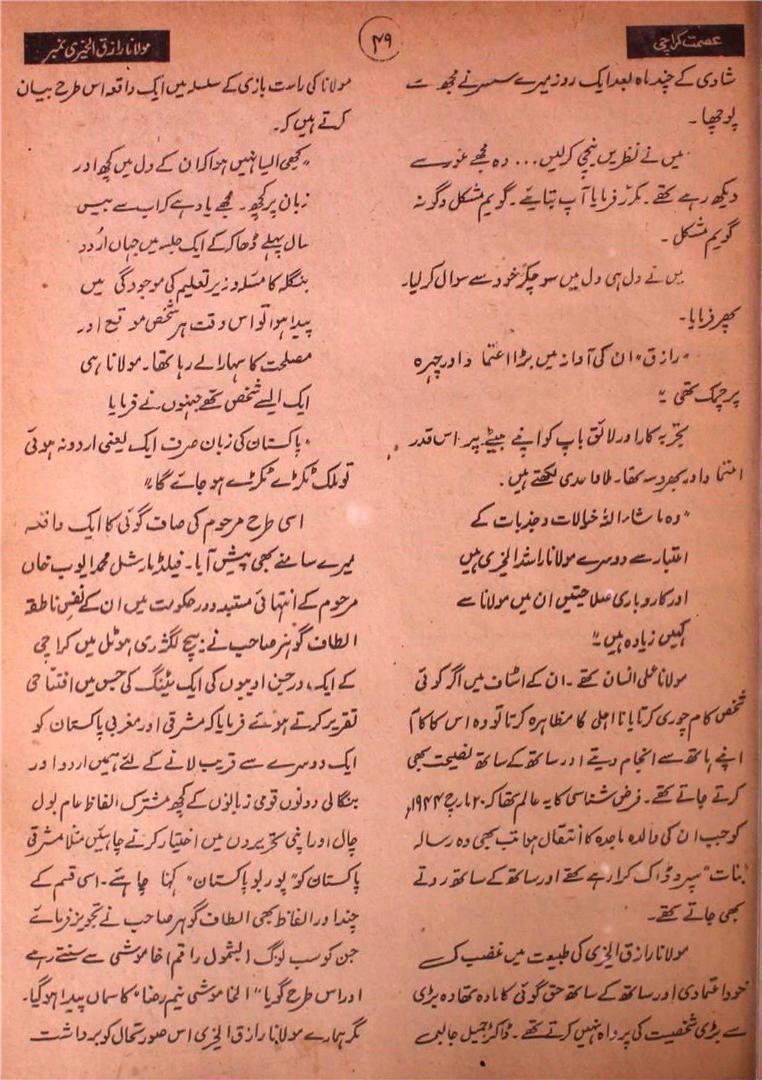 عصمت کراچی
۴۹
مولانا رازق الخیری نمبر
شادی کے چند ماہ بعد ایک روز میرے سسر نے مجھ سے
پوچھا۔
میں نے نظریں نیچی کرلیں... وہ مجھے غور سے
دیکھ رہے تھے۔ مکرر فرمایا آپ بتایئے۔ گویم مشکل وگرنہ
گویم مشکل۔
میں نے دل ہی دل میں سوچکر خود سے سوال کرلیا۔
پھر فرمایا۔
"رازق" ان کی آواز میں بڑا اعتماد اور چہرہ
پر چمک تھی"
تجربہ کار اور لائق باپ کو اپنے بیٹے پر اس قدر
اعتماد اور بھروسہ تھا۔ ملا واحدی لکھتے ہیں۔
"وہ ماشاءاللہ خیالات و جذبات کے
اعتبار سے دوسرے مولانا راشد الخیری ہیں
اور کاروباری صلاحیتیں ان میں مولانا سے
کہیں زیادہ ہیں"
مولانا عملی انسان تھے۔ ان کے اسٹاف میں اگر کوئی
شخص کام چوری کرتا یا نااہلی کا مظاہرہ کرتا تو وہ اس کا کام
اپنے ہاتھ سے انجام دیتے اور ساتھ کے ساتھ نصیحت بھی
کرتے جاتے تھے۔ فرض شناسی کا یہ عالم تھا کہ ۲۰ مارچ ۱۹۴۴ء
کو جب ان کی والدہ ماجدہ کا انتقال ہوا تب بھی وہ رسالہ
"بنات" سپرد ڈاک کرا رہے تھے اور ساتھ کے ساتھ روتے
بھی جاتے تھے۔
مولانا رازق الخیری کی طبیعت میں غضب کی
خود اعتمادی اور ساتھ کے ساتھ حق گوئی کا مادہ تھا وہ بڑی
سے بڑی شخصیت کی پرواہ نہیں کرتے تھے۔ ڈاکٹر جمیل جالبی
مولانا کی راست بازی کے سلسلہ میں ایک واقعہ اس طرح بیان
کرتے ہیں کہ۔
"کبھی ایسا نہیں ہوا کہ ان کے دل میں کچھ اور
زبان پر کچھ۔ مجھے یاد ہے کہ اب سے بیس
سال پہلے ڈھاکہ کے ایک جلسہ میں جہاں اُردو
بنگلہ کا مسئلہ وزیر تعلیم کی موجودگی میں
پیدا ہوا تو اس وقت ہر شخص موقع اور
مصلحت کا سہارا لے رہا تھا۔ مولانا ہی
ایک ایسے شخص تھے جنہوں نے فرمایا
"پاکستان کی زبان صرف ایک یعنی اردو نہ ہوئی
تو ملک ٹکڑے ٹکڑے ہو جائے گا"
اسی طرح مرحوم کی صاف گوئی کا ایک واقعہ
میرے سامنے بھی پیش آیا۔ فیلڈ مارشل محمد ایوب خان
مرحوم کے انتہائی مستبد دور حکومت میں ان کے نفس ناطقہ
الطاف گوہر صاحب نے بیچ لگژری ہوٹل میں کراچی
کے ایک درجن ادیبوں کی ایک میٹنگ کی جس میں افتتاحی
تقریر کرتے ہوئے فرمایا کہ مشرقی اور مغربی پاکستان کو
ایک دوسرے سے قریب لانے کے لئے ہمیں اردو اور
بنگالی دونوں قومی زبانوں کے کچھ مشترک الفاظ عام بول
چال اور اپنی تحریروں میں اختیار کرنے چاہیئں مثلاً مشرقی
پاکستان کو "پوربو پاکستان" کہنا چاہیئے۔ اسی قسم کے
چند اور الفاظ بھی الطاف گوہر صاحب نے تجویز فرمائے
جن کو سب لوگ (بشمول راقم) خاموشی سے سنتے رہے
اور اس طرح گویا "الخاموشی نیم رضا" کا سماں پیدا ہوگیا۔
مگر ہمارے مولانا رازق الخیری اس صورتحال کو برداشت